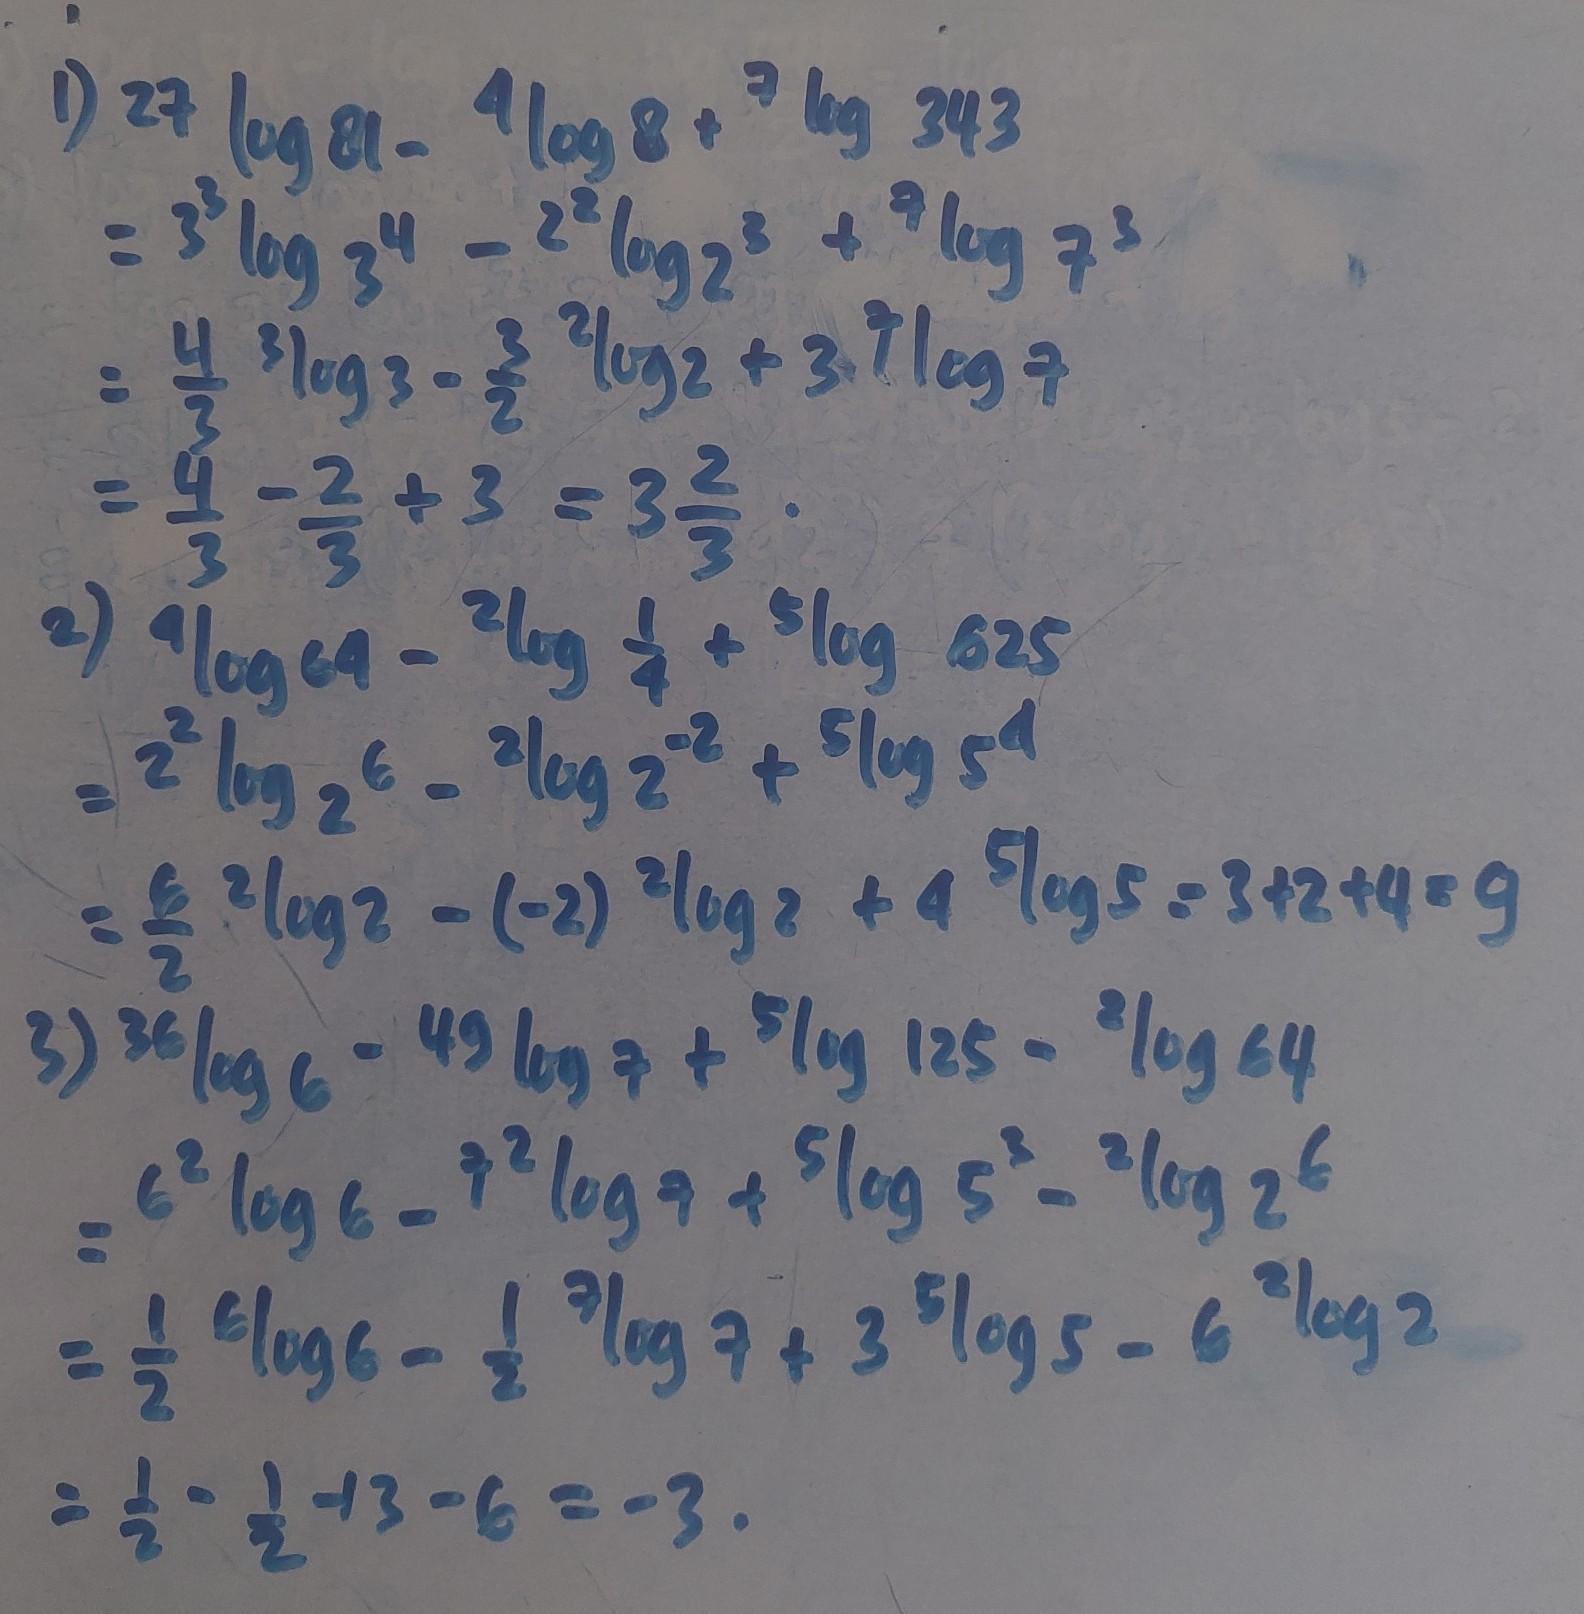 1) ²⁷log 81 - ⁴log 8 + ⁷log 343
= 3³ log 3⁴ - 2² log 2³ + ⁷log 7³
= 4/3 ³log 3 - 3/2 ²log 2 + 3 ⁷log 7
= 4/3 - 2/3 + 3 = 3 2/3 .
2) ⁴log 64 - ²log 1/4 + ⁵log 625
= 2² log 2⁶ - ²log 2⁻² + ⁵log 5⁴
= 6/2 ²log 2 - (-2) ²log 2 + 4 ⁵log 5 = 3+2+4 = 9
3) ³⁶log 6 - ⁴⁹log 7 + ⁵log 125 - ²log 64
= 6² log 6 - 7² log 7 + ⁵log 5³ - ²log 2⁶
= 1/2 ⁶log 6 - 1/2 ⁷log 7 + 3 ⁵log 5 - 6 ²log 2
= 1/2 - 1/2 + 3 - 6 = -3 .